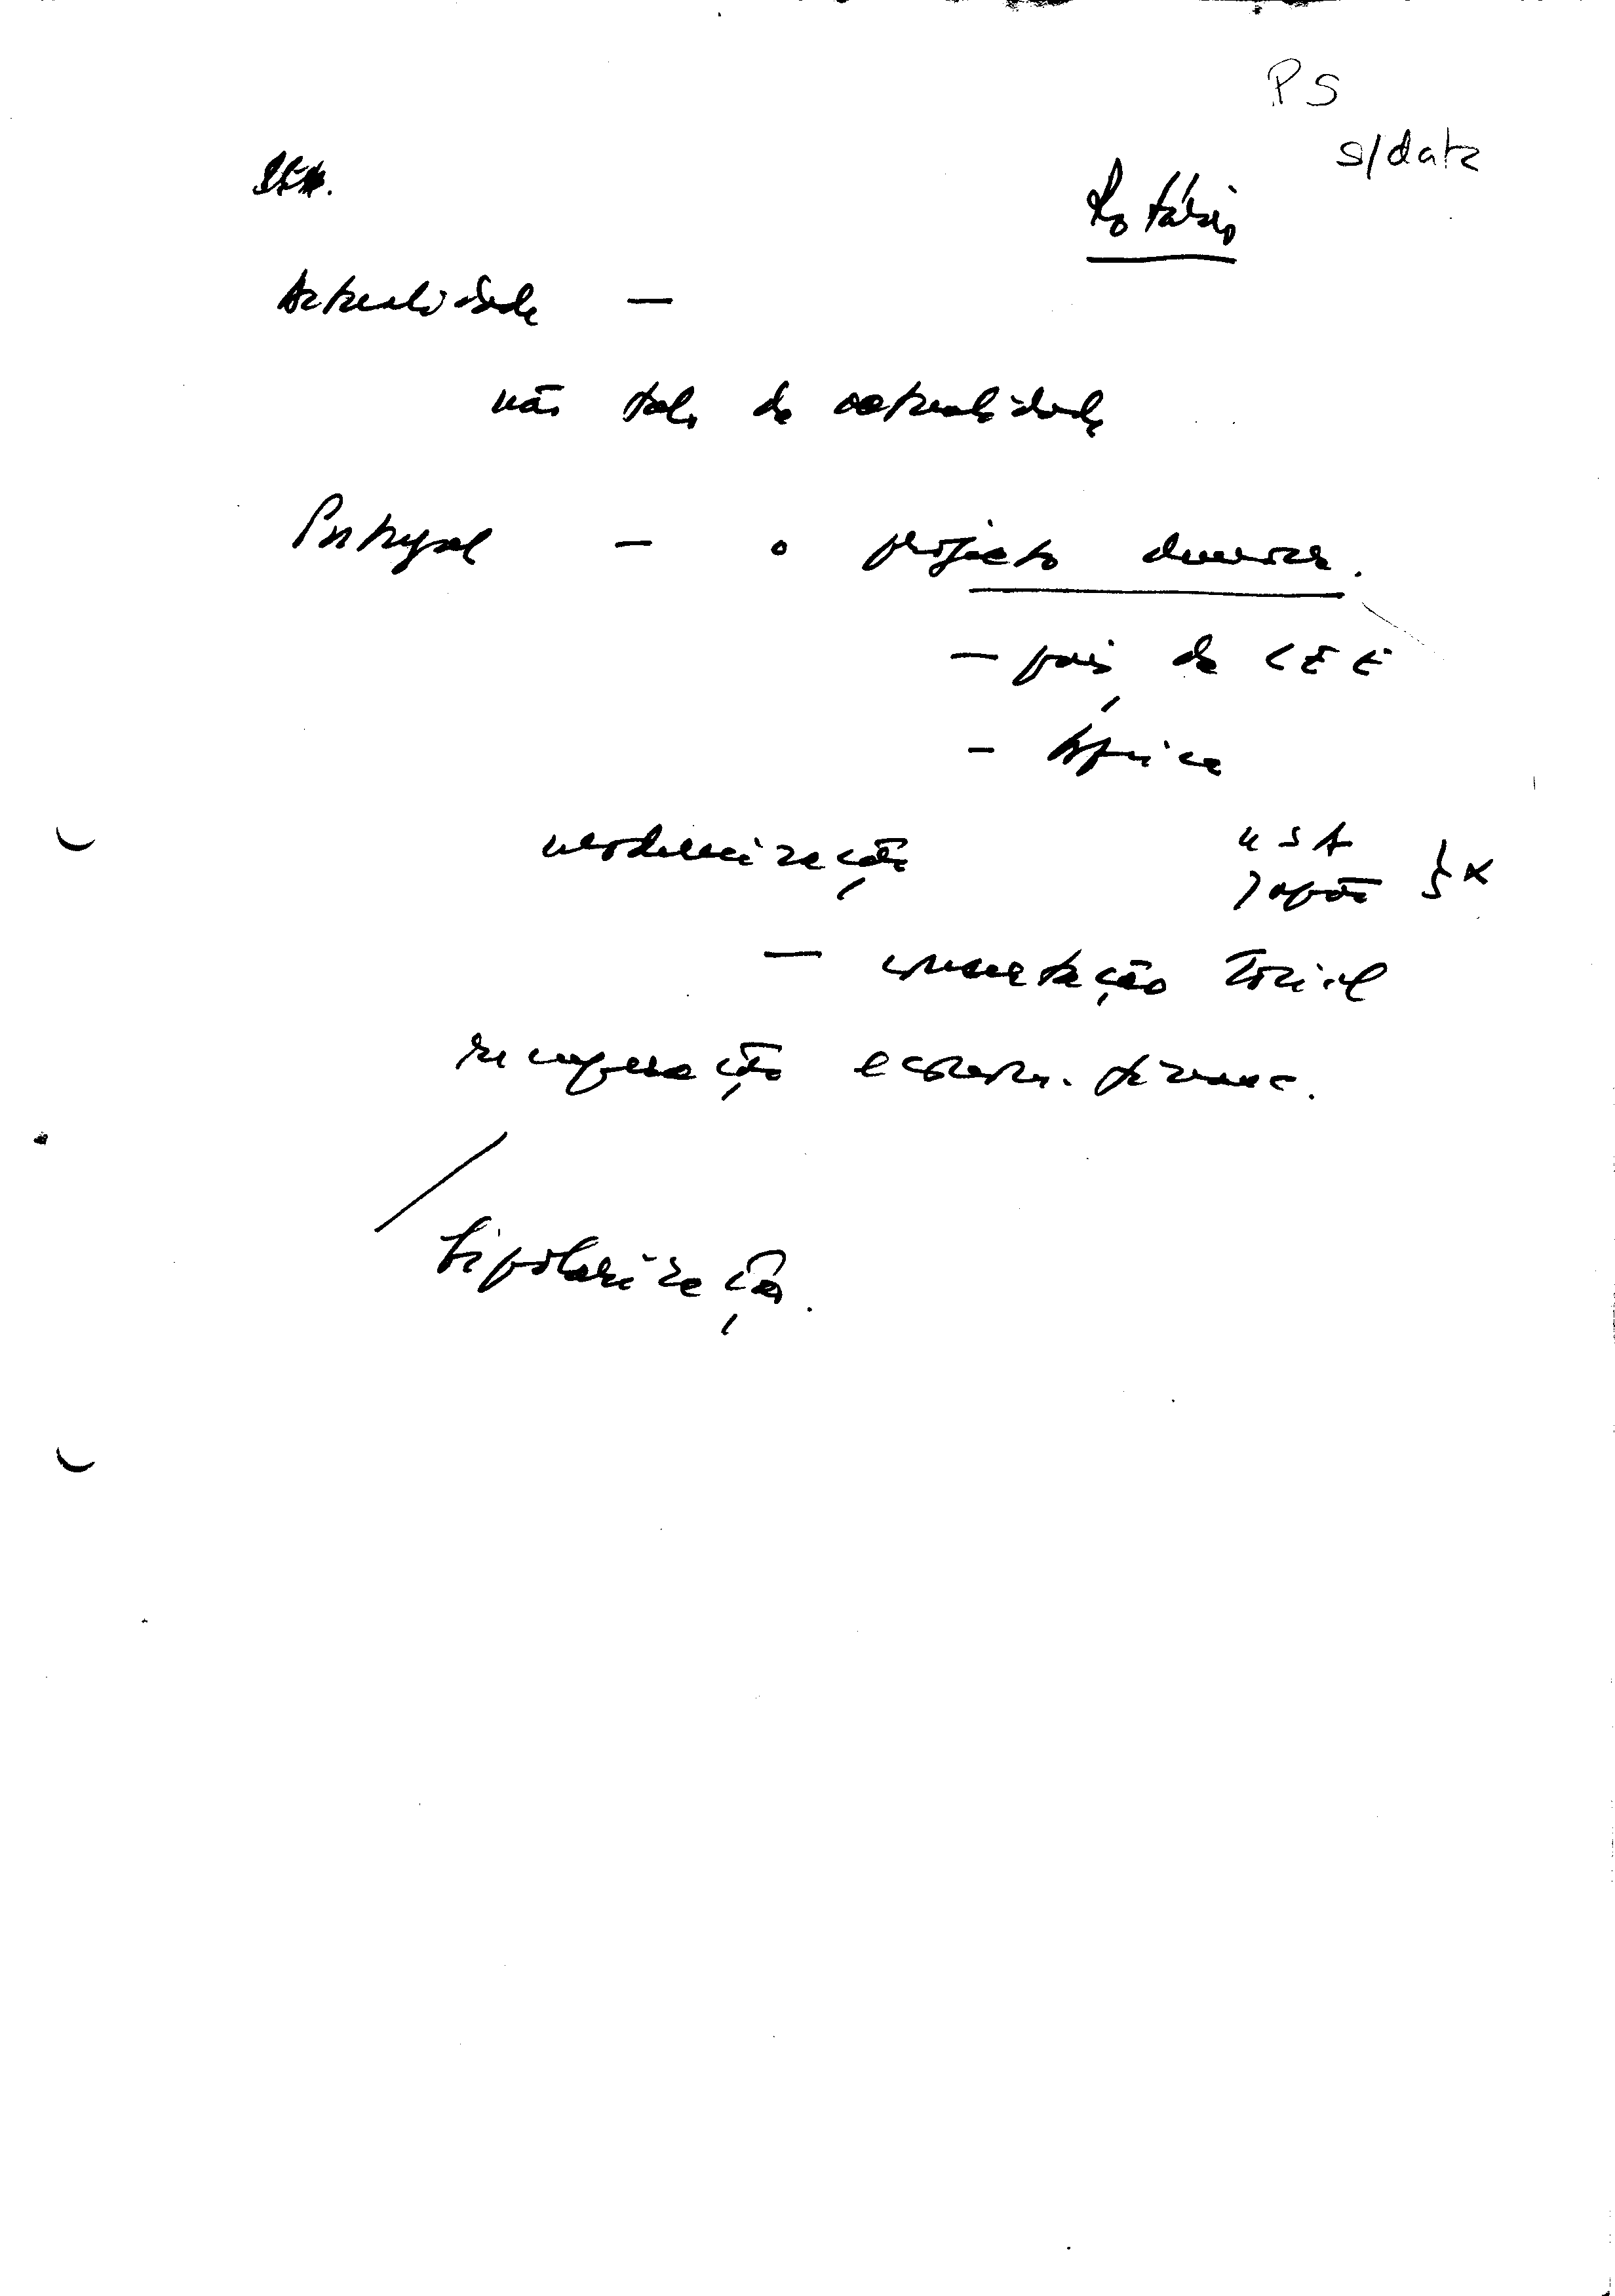 PS
s/data
Rotários
Actualidade —
não falo da actualidade
Portugal — o projecto democr.
— país da CEE
— África
modernização
USA
Japão } x
— concertação social
recuperação económ. financ.
bipolarização.